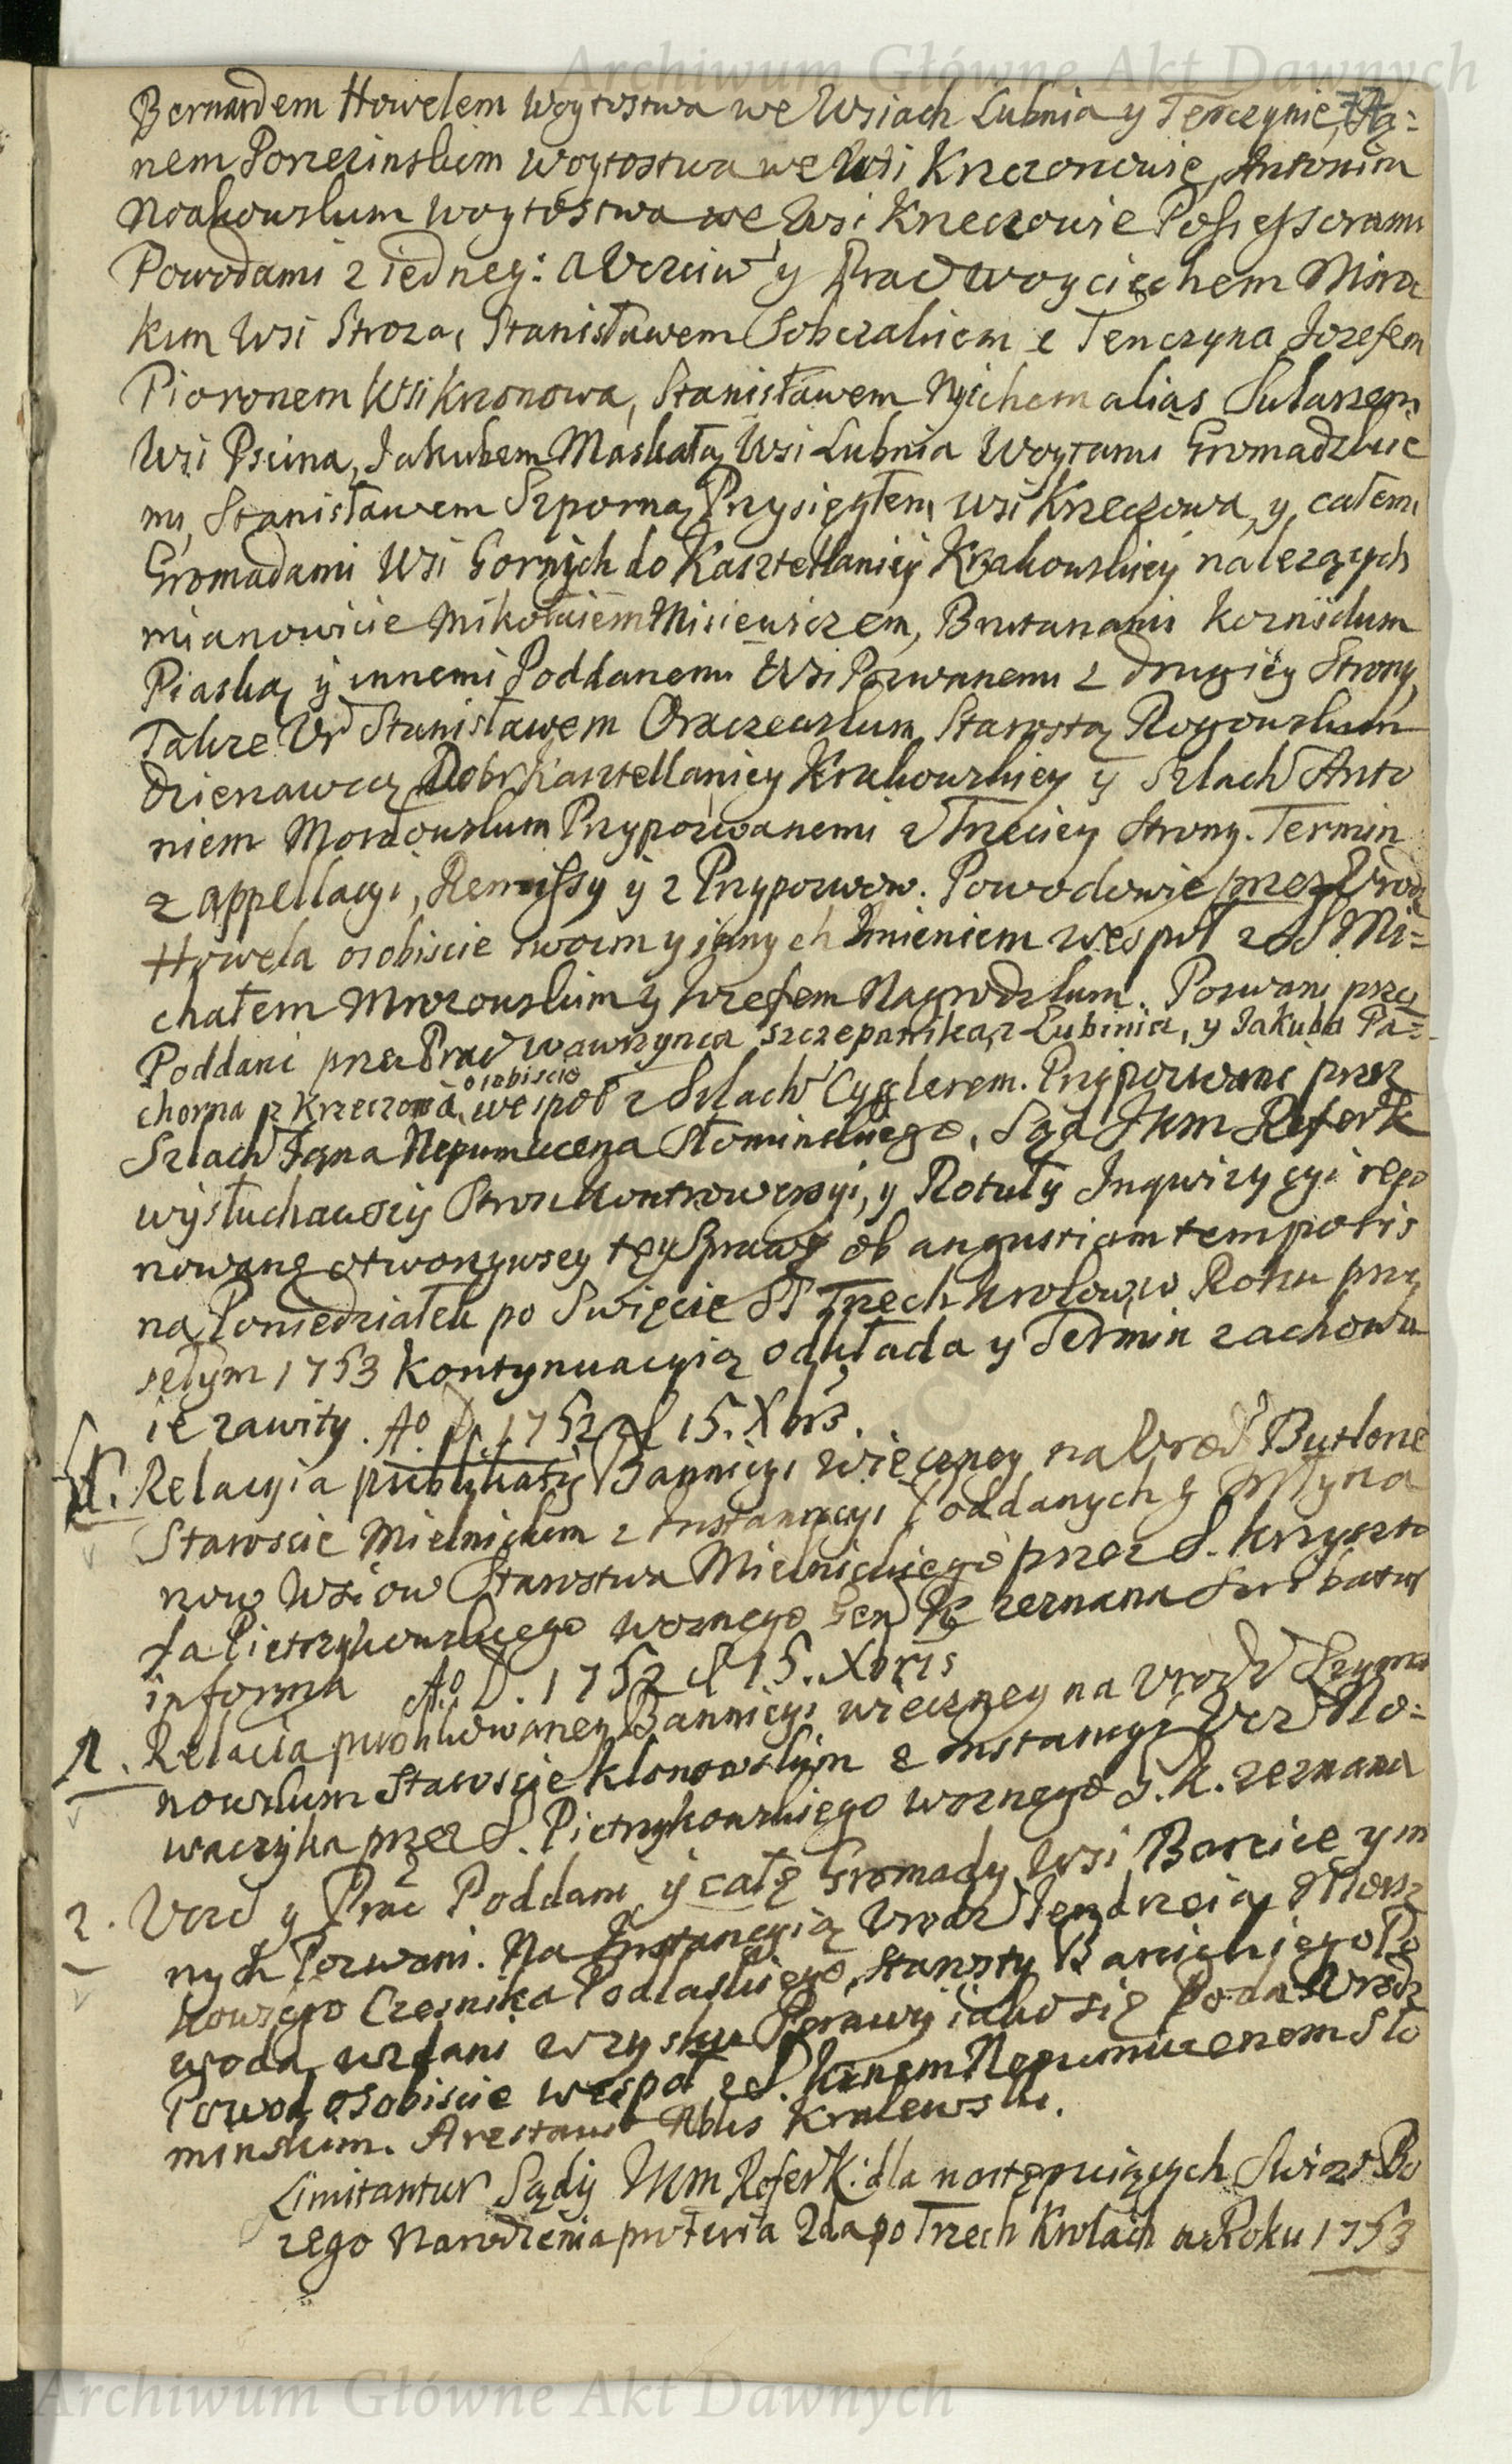 Archiwum Główne Akt Dawnych
77
Bernardem Howelem Woytostwa we Wsiach Lubnia y Tenczynie, Ja=
nem Porzezinskiem Woytostwa we Wsi Krzczonowie, Antonim
Noakowskim Woytostwa we Wsi Krzeczowie Possessorami
Powodami z iedney: a Uczciw y Prac Woyciechem Mira
kim Wsi Stroza, Stanisławem Sobczakiem z Tenczyna Jozefem
Pioronem Wsi Krzonowa, Stanisławem Nyichem alias Sularzem
Wsi Pscina, Jakubem Maskałą Wsi Lubnia Woytami Gromadzkie
mi, Stanisławem Szporną Przysięgłem Wsi Krzeczowa, y całemi
Gromadami Wsi Gornych do Kasztellaniey Krakowskiey nalezących
mianowicie Mikołaiem Misiewiczem, Burtanami Kornickim
Piaską y innemi Poddanemi Wsi Pozwanemi z drugiey Strony,
Takze Ur Stanisławem Oraczewskim Starostą Rogowskim
Dzierzawcą Dobr Kasztellaniey Krakowskiey y Szlach Anto
niem Mordowskim Przypozwanemi z Trzeciey Strony. Termin
z appellacyi, Remissy y z Przypozwow. Powodowie przez Urodz
Howela osobiscie swoim y innych Imieniem wespoł z S. Mi=
chałem Mrozowskim y Jozefem Nagrodzkim. Pozwani przez
Poddani przez Prac Wawrzynca Szczepanika z Lubinia, y Jakuba Pa=
chorna z Krzeczowa osobiscie wespoł z Szlach Cyglerem. Przypozwani przez
Szlach Jana Nepumucena Słominskiego. Sąd JKM Referk
wysłuchawszy Stron Kontrowersyi, y Rotuły Inqwizycyi repo
nowane otworzywszy tey Sprawy ob angustiam temporis
na Poniedziałek po Swięcie SS Trzech Krolow, w Roku przy
szłym 1753 Kontynuacyią odkłada y Termin zachowu
ie zawity. Ao D. 1752 d 15. Xbris.
Relacyia publikaty Bannicyi wieczney na Urodz Butlone
Staroscie Mielnickim z Instancyi Poddanych y Młyna
row Wsiow Starostwa Mielnickiego przez S. Krzyszto
fa Pietrzykowskiego Woznego Gen K zeznana
in forma Ao D. 1752 d 15. Xbris
1. Relacia publikowaney Bannicyi wieczney na Urodz Szyma
nowskim Staroscie Klonowskim z Instancyi Ucz No=
waczyka przez S. Pietrzykowskiego Woznego J. K. zeznana
2. Ucz y Prac Poddani y całe Gromady Wsi Barcice y in
nych Pozwani. Na Instancyią Urodz Jendrzeia Morsz
kowsgo Czesnika Podlaskiego, Starosty Barcickiego Po
woda wzdani w zysku Sprawy iako się Poda Urodz
Powod osobiscie wespoł z S. Janem Nepomucenem Sło
minskim. Arestawit Nblis Kralewski.
Limitantur Sądy JKM Referk: dla nastepuiących Swiąt Bo
zego Narodzenia pro feria 2da po Trzech Krolach w Roku 1753
Archiwum Główne Akt Dawnych